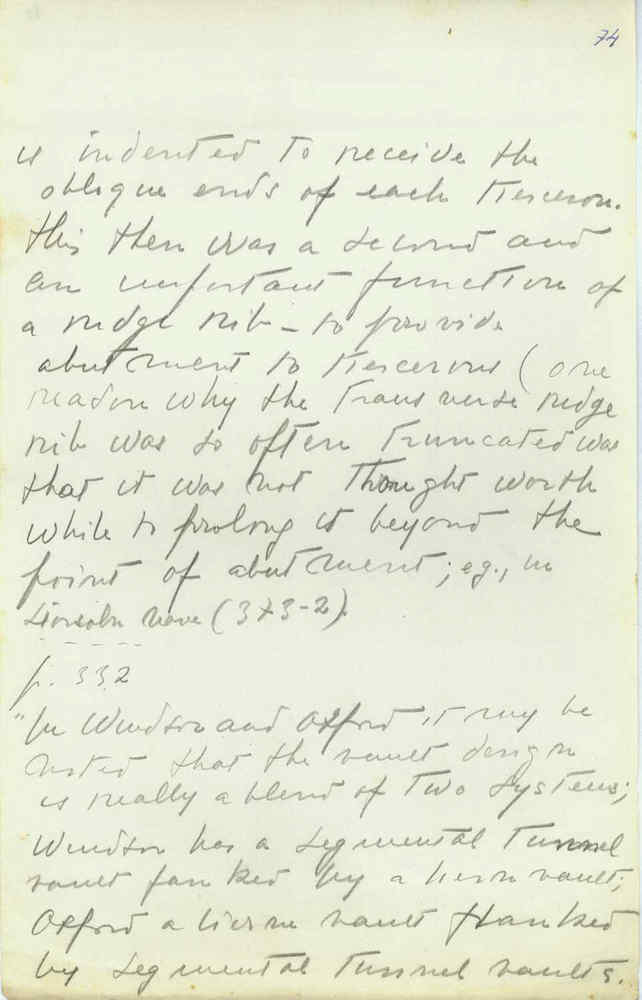 74
is indented to receive the
oblique ends of each tierceron.
this then was a second and
an important function of
a ridge rib - to provide
abutment to tiercerons (one
reason why the transverse ridge
rib was so often truncated was
that it was not thought worth
while to prolong it beyond the
point of abutment; eg., in
Lincoln nave (373-2).
p. 332
"In Windsor and Oxford it may be
noted that the vault design
is really a blend of two systems;
Windsor has a segmental tunnel
vault flanked by a lierne vault,
Oxford a lierne vault flanked
by segmental tunnel vaults.